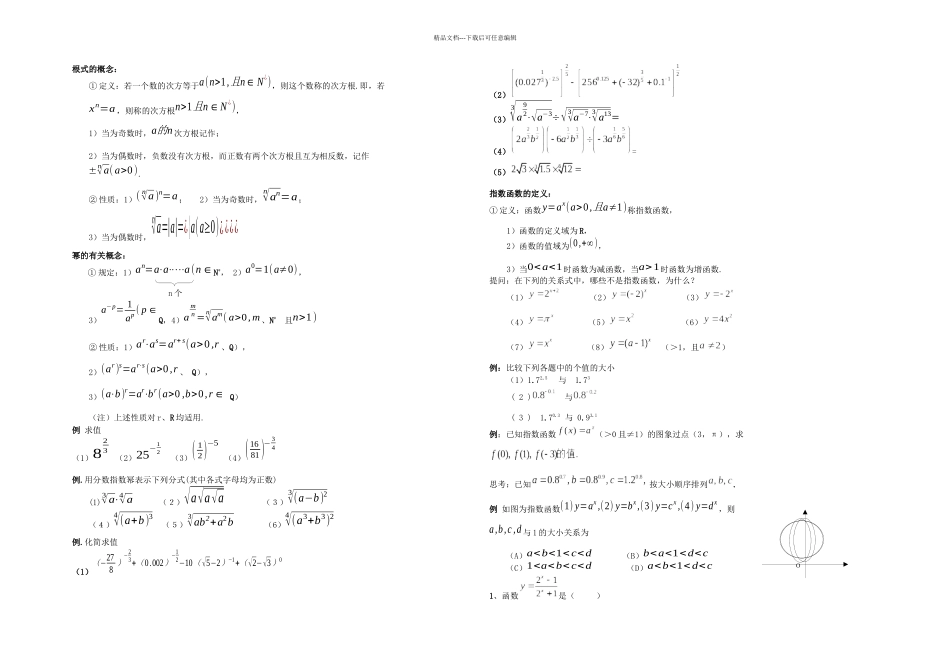 精品文档---下载后可任意编辑
根式的概念：
①定义：若一个数的次方等于a(n>1,且n∈N^¿)，则这个数称的次方根.即，若
x^n=a，则称的次方根n>1且n∈N^¿)，
1）当为奇数时，a的n次方根记作；
2）当为偶数时，负数没有次方根，而正数有两个次方根且互为相反数，记作
±ⁿ√a(a>0).
②性质：1）(ⁿ√a)^n=a； 2）当为奇数时，ⁿ√a^n=a；
3）当为偶数时，ⁿ√a=|a|=¿{a(a≥0)¿¿¿¿
幂的有关概念：
①规定：1）a^n=a·a·····a(n∈N*， 2）a^0=1(a≠0)，
n 个
3）a^-p=1/a^p(p∈Q，4）a^(m/n)=ⁿ√a^m(a>0,m、N* 且n>1)
②性质：1）a^r·a^s=a^(r+s)(a>0,r、Q），
2）(a^r)^s=a^(r·s)(a>0,r、 Q），
3）(a·b)^r=a^r·b^r(a>0,b>0,r∈ Q）
（注）上述性质对 r、R 均适用.
例 求值
（1）8^(2/3) （2）25^(-1/2) （3）(1/2)^-5 （4）(16/81)^(-3/4)
例.用分数指数幂表示下列分式(其中各式字母均为正数)
(1)³√a·⁴√a （2）√(a√(a√a)) （3）³√(a−b)^2
（4）⁴√(a+b)^3 （5）³√ab^2+a^2b （6）⁴√(a^3+b^3)^2
例.化简求值
（1）（−27/8）^(−2/3)+（0.002）^(−1/2)−10（√5−2）^−1+（√2−√3）^0
（2）[(0.027^(1/3))^2.5]^(2/5)−[256^0.125+(−32)^(3/5)+0.1^-1]^(1/2)
（3）³√a^(9/2)·√a^−3÷√³√a^−7·³√a^13=
（4）(2a^(2/3)b^(1/2))(−6a^(1/2)b^(1/3))÷(−3a^(1/6)b^(5/6))=
（5）2√3×³√1.5×⁶√12=
指数函数的定义：
①定义：函数y=a^x(a>0,且a≠1)称指数函数，
1）函数的定义域为 R，
2）函数的值域为(0,+∞)，
3）当0<a<1时函数为减函数，当a>1时函数为增函数.
提问：在下列的关系式中，哪些不是指数函数，为什么？
（1）y=2^(x+2) （2）y=(−2)^x （3）y=−2^x
（4）y=π^x （5）y=x^2 （6）y=4x^2
（7）y=x^x （8）y=(a−1)^x （>1，且a≠2）
例：比较下列各题中的个值的大小
（1）1.7^2.5 与 1.7^3
（2）0.8^−0.1 与0.8^−0.2
（3） 1.7^0.3 与 0.9^3.1
例：已知指数函数f(x)=a^x（>0 且≠1）的图象过点（3，π），求
f(0),f(1),f(−3)的值.
思考：已知a=0.8^0.7,b=0.8^0.9,c=1.2^0.8,按大小顺序排列a,b,c.
例 如图为指数函数(1)y=a^x,(2)y=b^x,(3)y=c^x,(4)y=d^x，则
a,b,c,d与 1 的大小关系为
（A）a<b<1<c<d （B）b<a<1<d<c
（C）1<a<b<c<d （D）a<b<1<d<c
O
1、函数y=(2^x−1)/(2^x+1)是（ ）